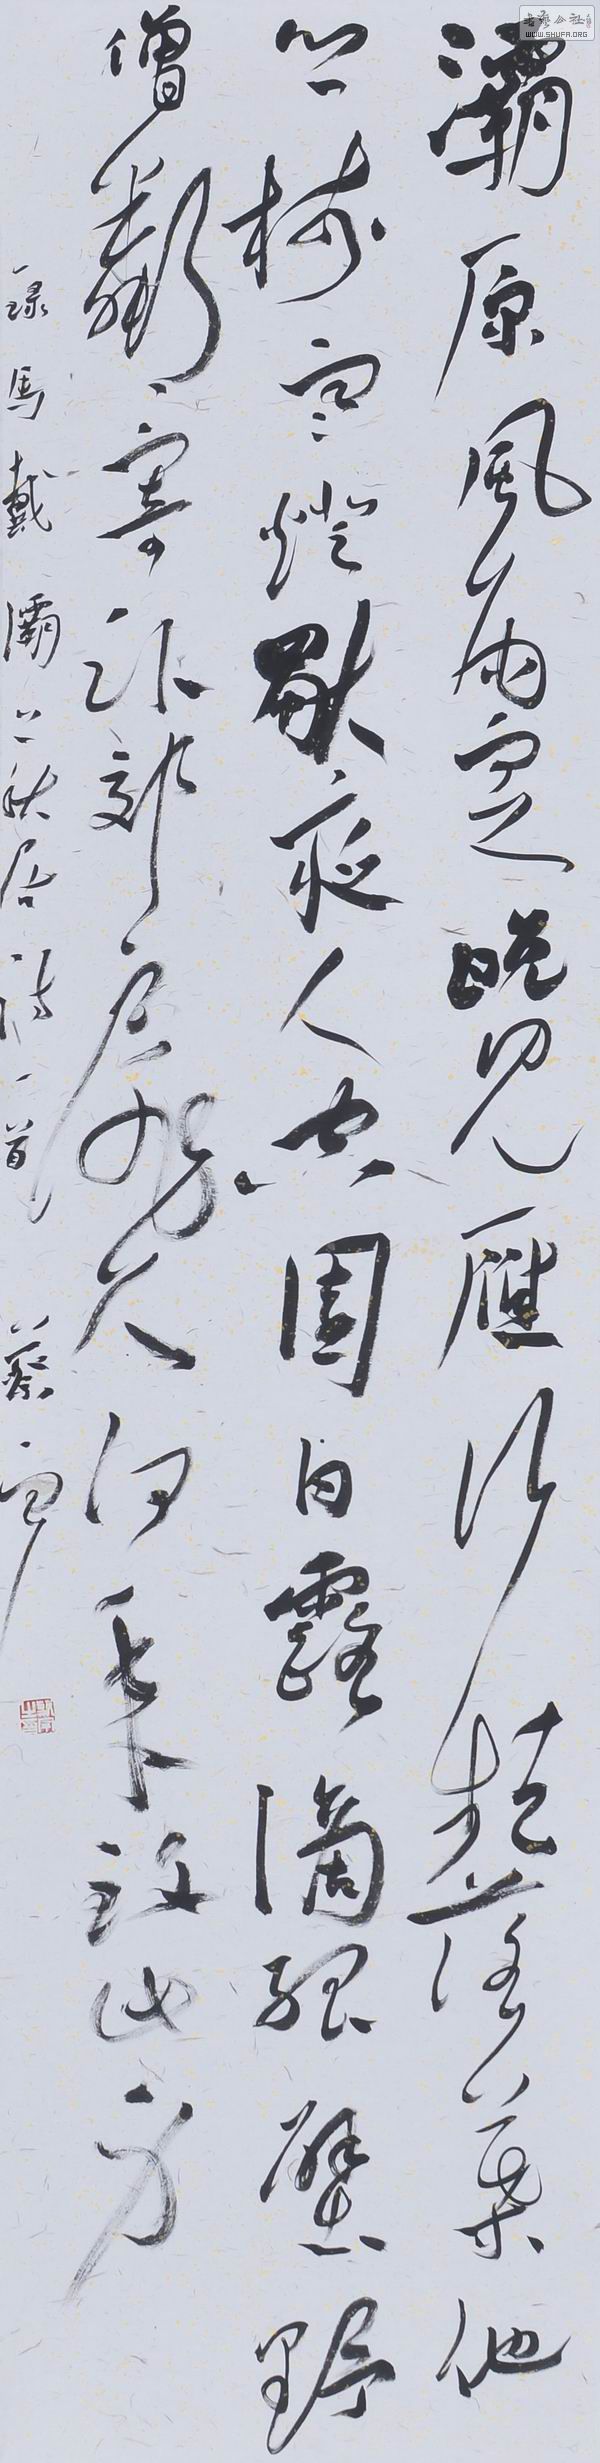 书艺公社
WWW.SHUFA.ORG
灞原風雨定晚見雁行頻落葉他
鄉樹寒燈獨夜人空園白露滴孤壁野
僧鄰寄臥郊扉久何年致此身
錄馬戴灞上秋居詩一首 蔡